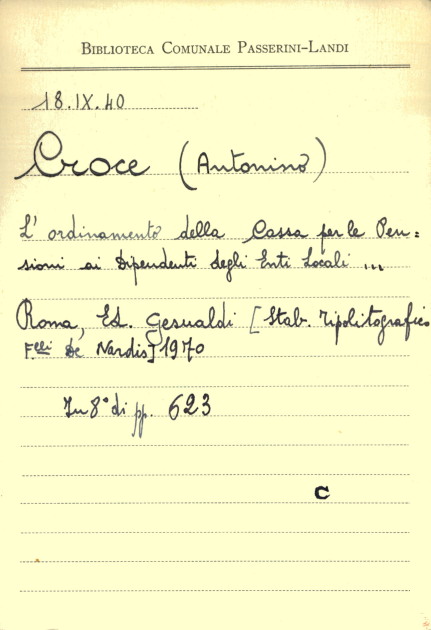 BIBLIOTECA COMUNALE PASSERINI-LANDI
18.IX.40
Croce (Antonino)
L'ordinamento della Cassa per le Pen=
sioni ai Dipendenti degli Enti Locali ...
Roma, Ed. Gesualdi [Stab. Tipolitografico
F.lli De Nardis] 1970
In 8° di pp. 623
C